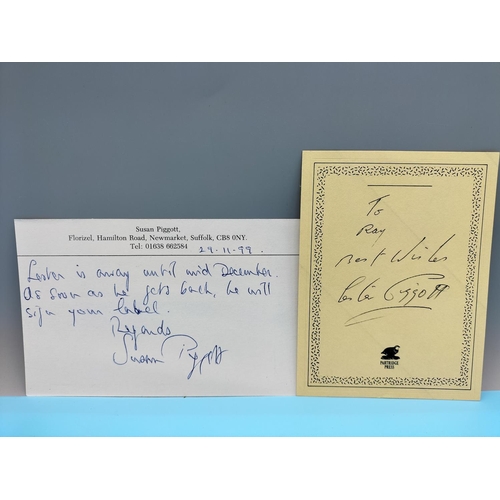 Susan Piggott,
Florizel, Hamilton Road, Newmarket, Suffolk, CB8 0NY.
Tel: 01638 662584
29.11.99.
Lester is away until mid December.
As soon as he gets back, he will
sign your label.
Regards
Susan Piggott
To
Ray
Best Wishes
Lester Piggott
PARTRIDGE
PRESS